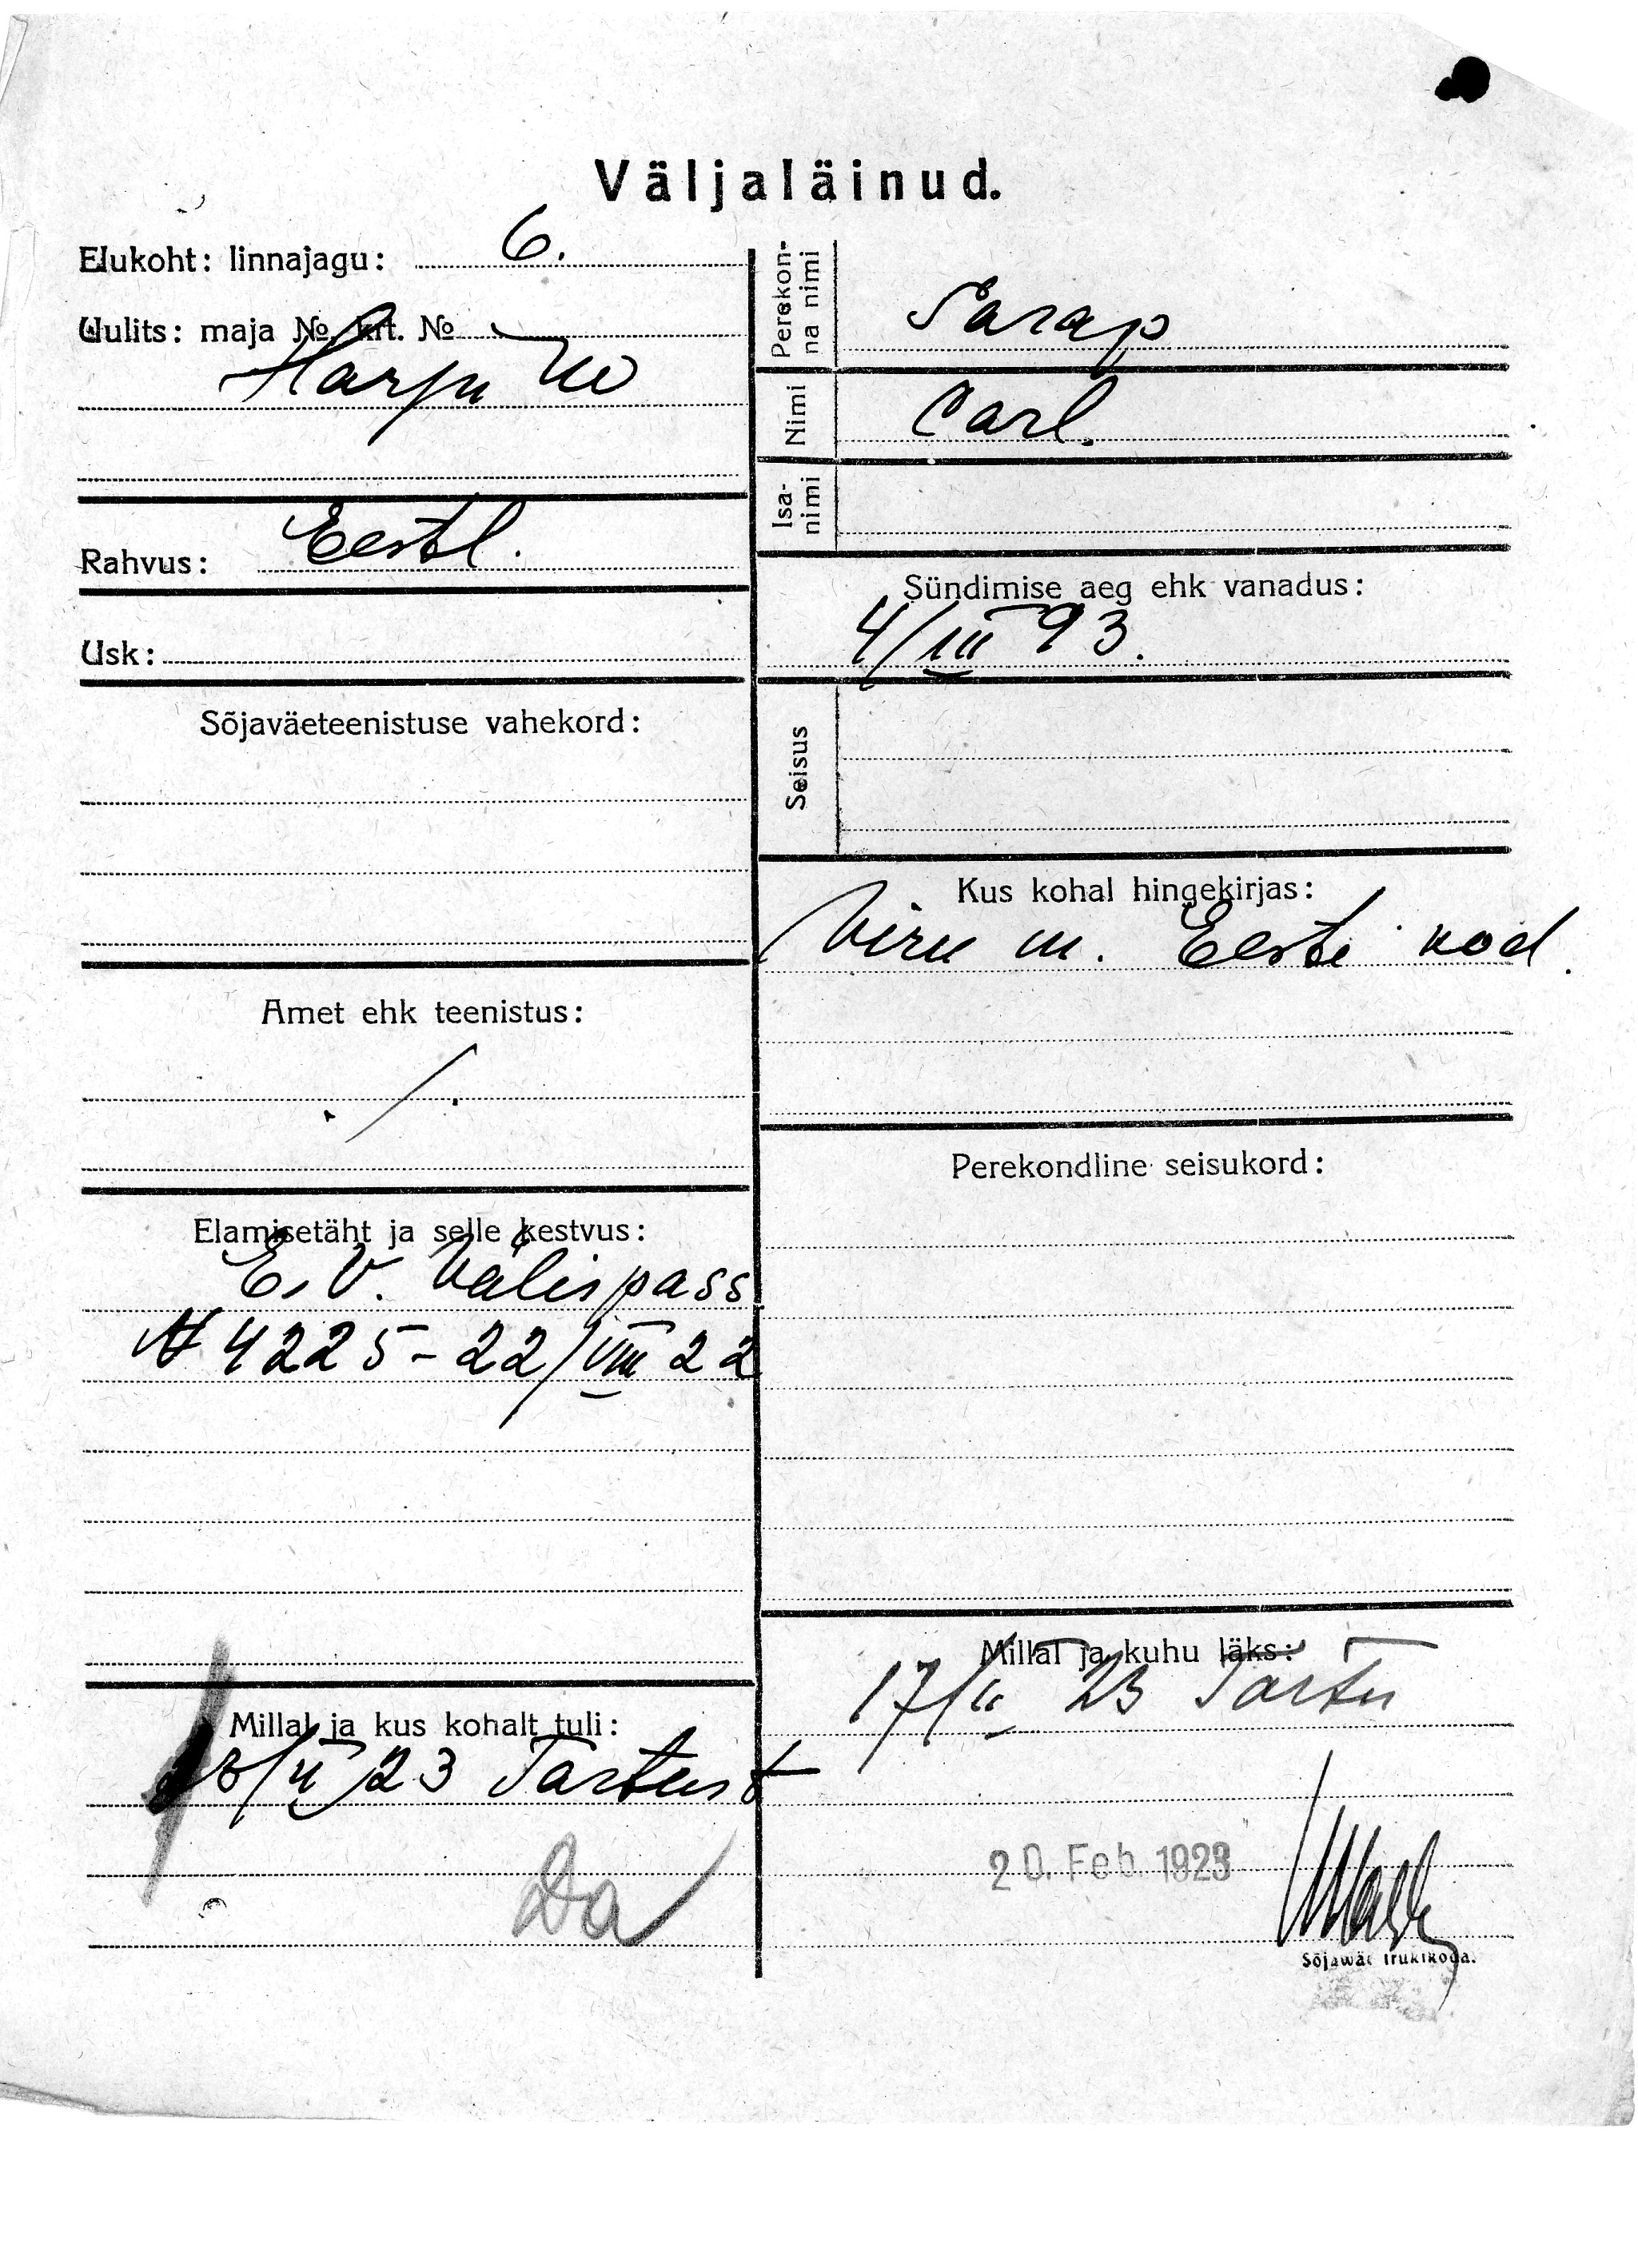 Väljaläinud.
Elukoht: linnajagu: 6.
Uulits: maja № krt. №
Harju
Rahvus: Eestl.
Usk:
Sõjaväeteenistuse vahekord:
Amet ehk teenistus:
./.
Elamisetäht ja selle kestvus:
E.V. Välispass
№ 4225 - 22/VIII 22
Millal ja kus kohalt tuli:
/II 23 Tartust
Da
Perekonna nimi
Sarap
Nimi
Carl.
Isanimi
Sündimise aeg ehk vanadus:
4/III 93.
Seisus
Kus kohal hingekirjas:
Viru m. Eesti kod.
Perekondline seisukord:
Millal ja kuhu läks:
17/II 23 Tartu
20. Feb. 1923
Sõjawäe trükikoda.